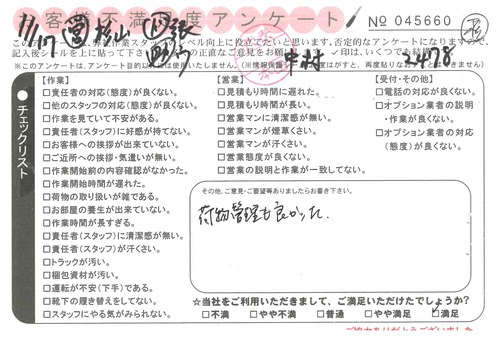 お客様不満足度アンケート
No 045660
11/17
杉山
中村
2478
【作業】
□責任者の対応(態度)が良くない。
□他のスタッフの対応(態度)が良くない。
□作業を見ていて不安がある。
□責任者(スタッフ)に好感が持てない。
□お客様への挨拶が出来ていない。
□ご近所への挨拶・気遣いが無い。
□作業開始前の内容確認がなかった。
□作業開始時間が遅れた。
□荷物の取り扱いが雑である。
□お部屋の養生が出来ていない。
□作業時間が長すぎる。
□責任者(スタッフ)に清潔感が無い。
□責任者(スタッフ)が汗くさい。
□トラックが汚い。
□梱包資材が汚い。
□運転が不安(下手)である。
□靴下の履き替えをしてない。
□スタッフにやる気がみられない。
【営業】
□見積もり時間に遅れた。
□見積もり時間が長い。
□営業マンに清潔感が無い。
□営業マンが煙草くさい。
□営業マンが汗くさい。
□営業態度が良くない。
□営業の説明と作業が一致してない。
【受付・その他】
□電話の対応が良くない。
□オプション業者の説明・作業が良くない。
□オプション業者の対応(態度)が良くない。
チェックリスト
その他、ご意見・ご要望等ありましたらお書き下さい。
荷物管理も良かった。
☆当社をご利用いただきまして、ご満足いただけたでしょうか?
□不満 □やや不満 □普通 □やや満足 □満足
ご協力ありがとうございました